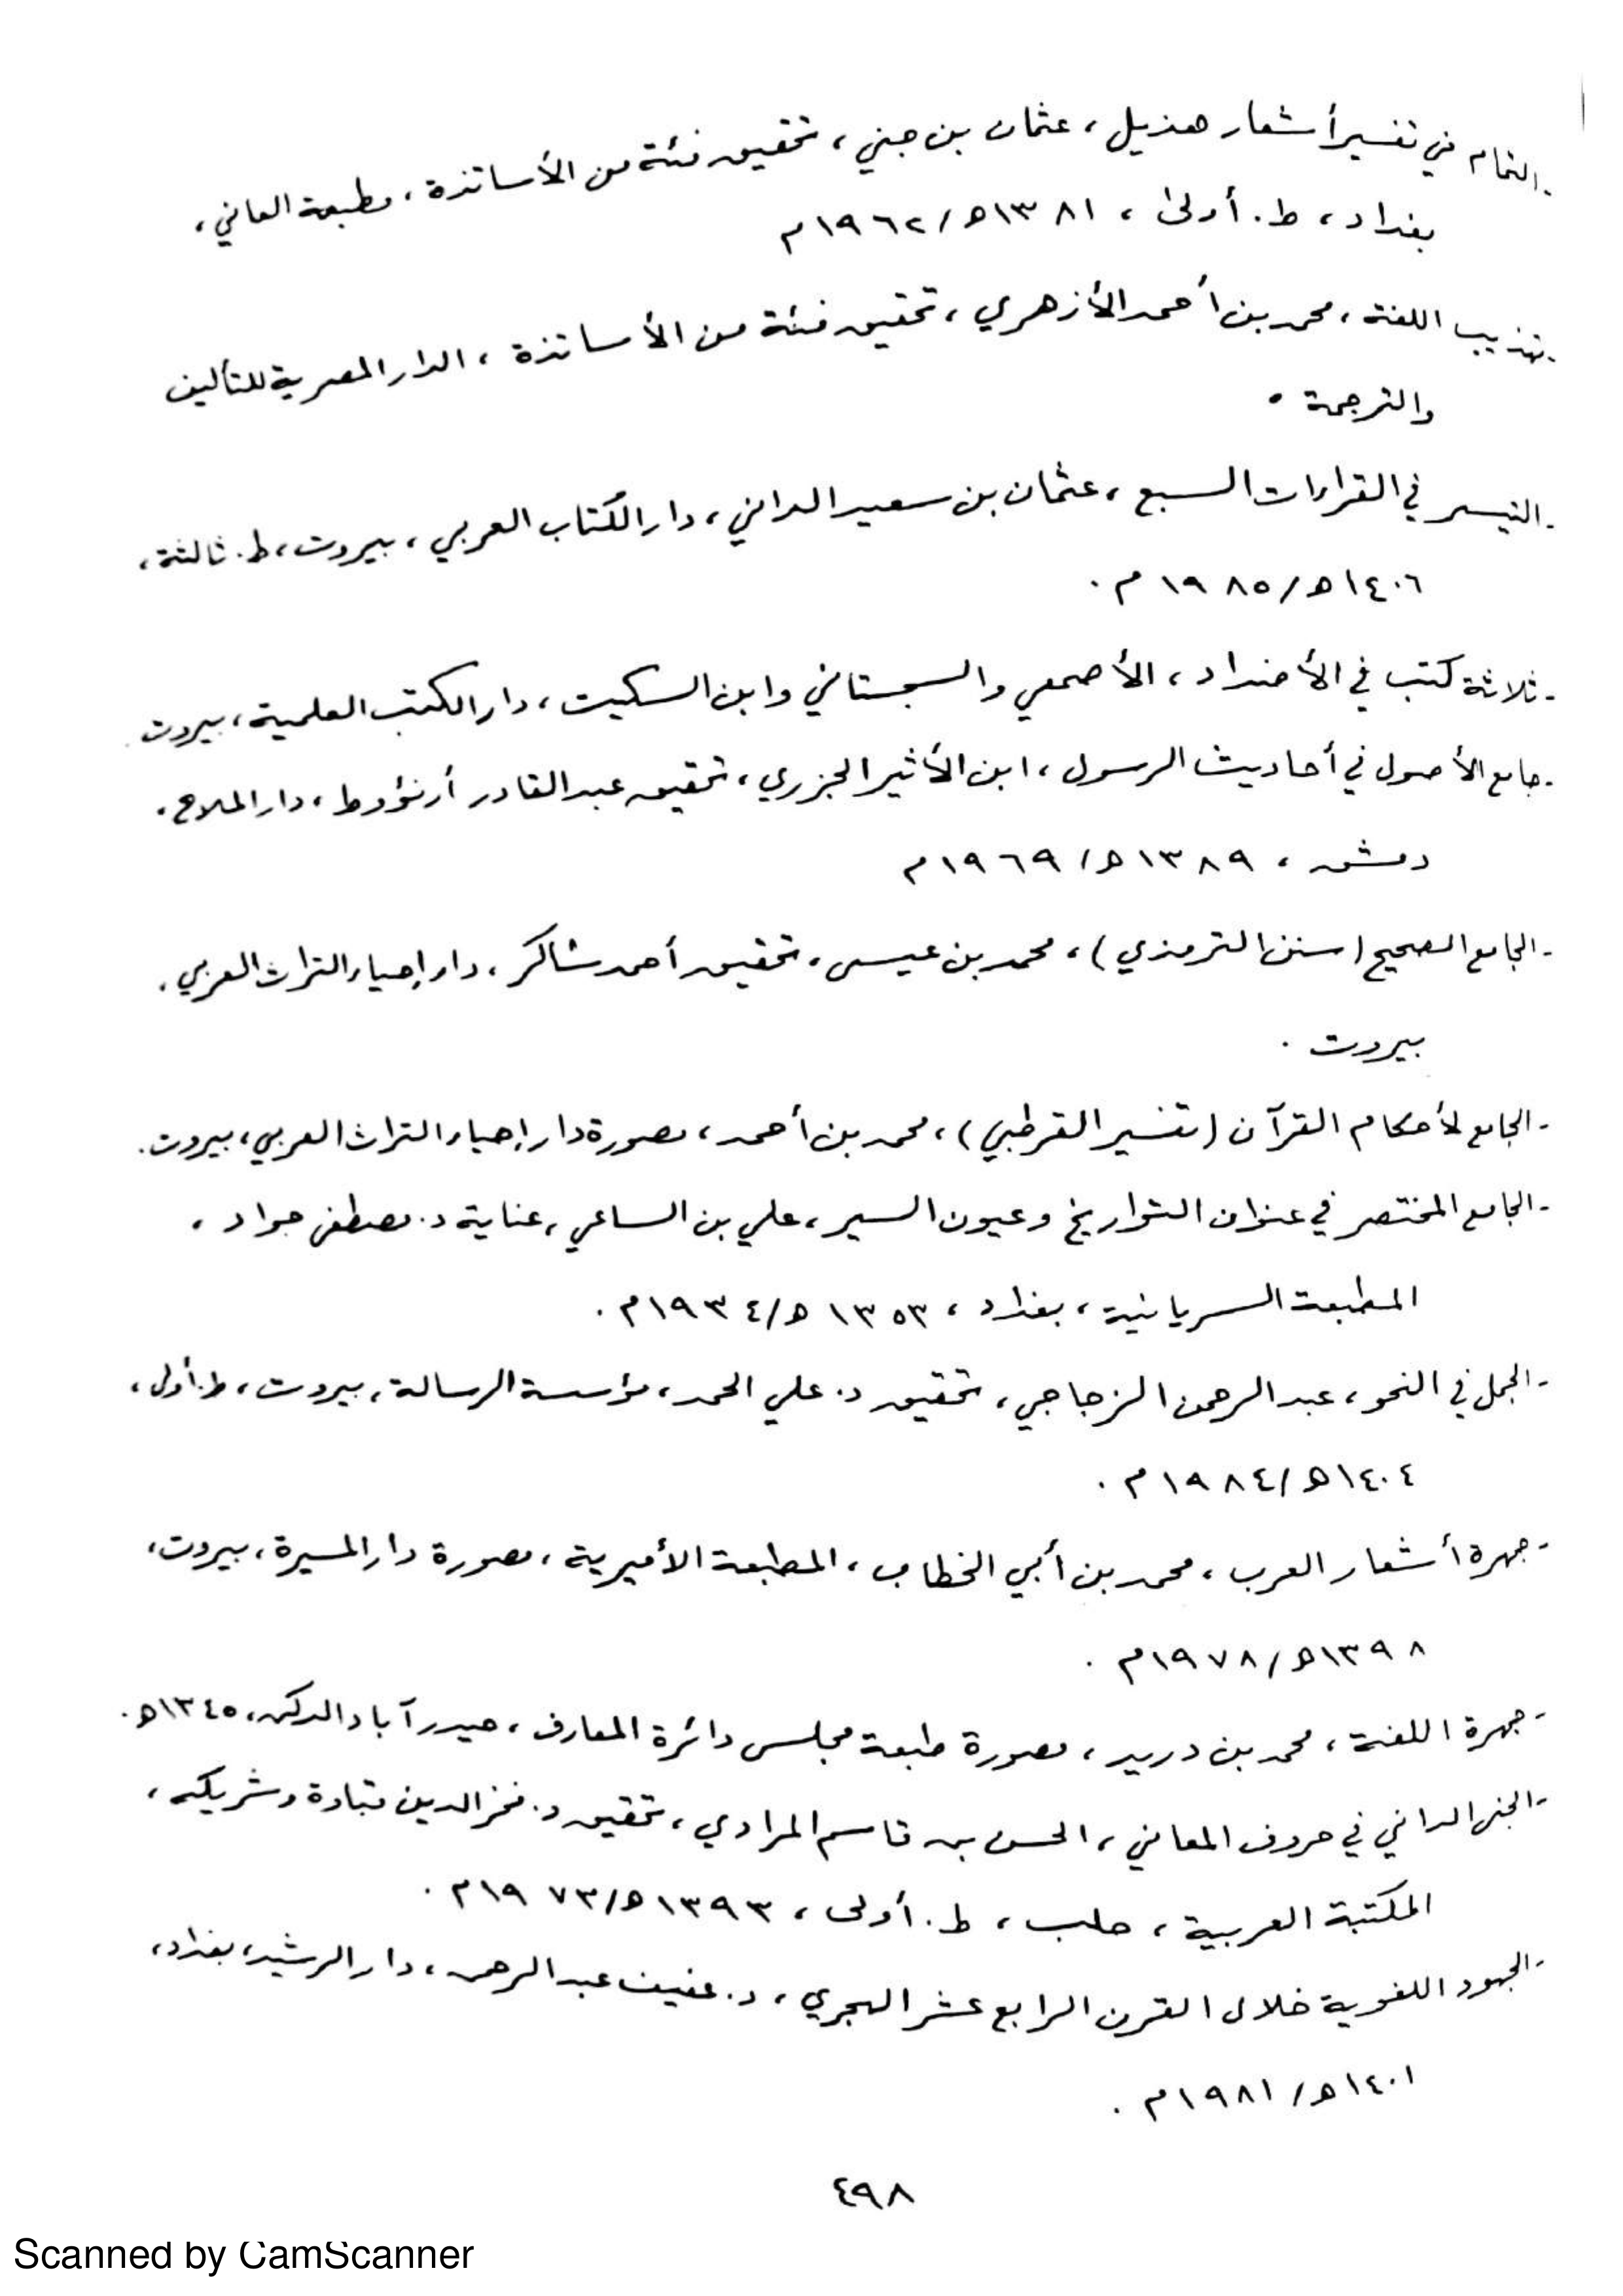 - التمام في تفسير أشعار هذيل ، عثمان بن جني ، تحقيق فئة من الأساتذة ، مطبعة العاني ،
بغداد ، ط . أولى ، ١٣٨١ه/١٩٦٢م
- تهذيب اللغة ، محمد بن أحمد الأزهري ، تحقيق فئة من الأساتذة ، الدار المصرية للتأليف
والترجمة .
- التيسير في القراءات السبع ، عثمان بن سعيد الداني ، دار الكتاب العربي ، بيروت ، ط . ثالثة ،
١٤٠٦ه/١٩٨٥م .
- ثلاثة كتب في الأضداد ، الأصمعي والسجستاني وابن السكيت ، دار الكتب العلمية ، بيروت .
- جامع الأصول في أحاديث الرسول ، ابن الأثير الجزري ، تحقيق عبد القادر أرنؤوط ، دار الملاح ،
دمشق ، ١٣٨٩ه/١٩٦٩م
- الجامع الصحيح ( سنن الترمذي ) ، محمد بن عيسى ، تحقيق أحمد شاكر ، دار إحياء التراث العربي ،
بيروت .
- الجامع لأحكام القرآن ( تفسير القرطبي ) ، محمد بن أحمد ، مصورة دار إحياء التراث العربي ، بيروت .
- الجامع المختصر في عنوان التواريخ وعيون السير ، علي بن الساعي ، عناية د . مصطفى جواد ،
المطبعة السريانية ، بغداد ، ١٣٥٣ه/١٩٣٤م .
- الجمل في النحو ، عبد الرحمن الزجاجي ، تحقيق د . علي الحمد ، مؤسسة الرسالة ، بيروت ، ط . أولى ،
١٤٠٤ه/١٩٨٤م .
- جمهرة أشعار العرب ، محمد بن أبي الخطاب ، المطبعة الأميرية ، مصورة دار المسيرة ، بيروت ،
١٣٩٨ه/١٩٧٨م .
- جمهرة اللغة ، محمد بن دريد ، مصورة طبعة مجلس دائرة المعارف ، حيدر آباد الدكن ، ١٣٤٥ه .
- الجنى الداني في حروف المعاني ، الحسن بن قاسم المرادي ، تحقيق د . فخر الدين قباوة وشريكه ،
المكتبة العربية ، حلب ، ط . أولى ، ١٣٩٣ه/١٩٧٣م .
- الجهود اللغوية خلال القرن الرابع عشر الهجري ، د . عفيف عبد الرحمن ، دار الرشيد ، بغداد ،
١٤٠١ه/١٩٨١م .
٤٩٨
Scanned by CamScanner